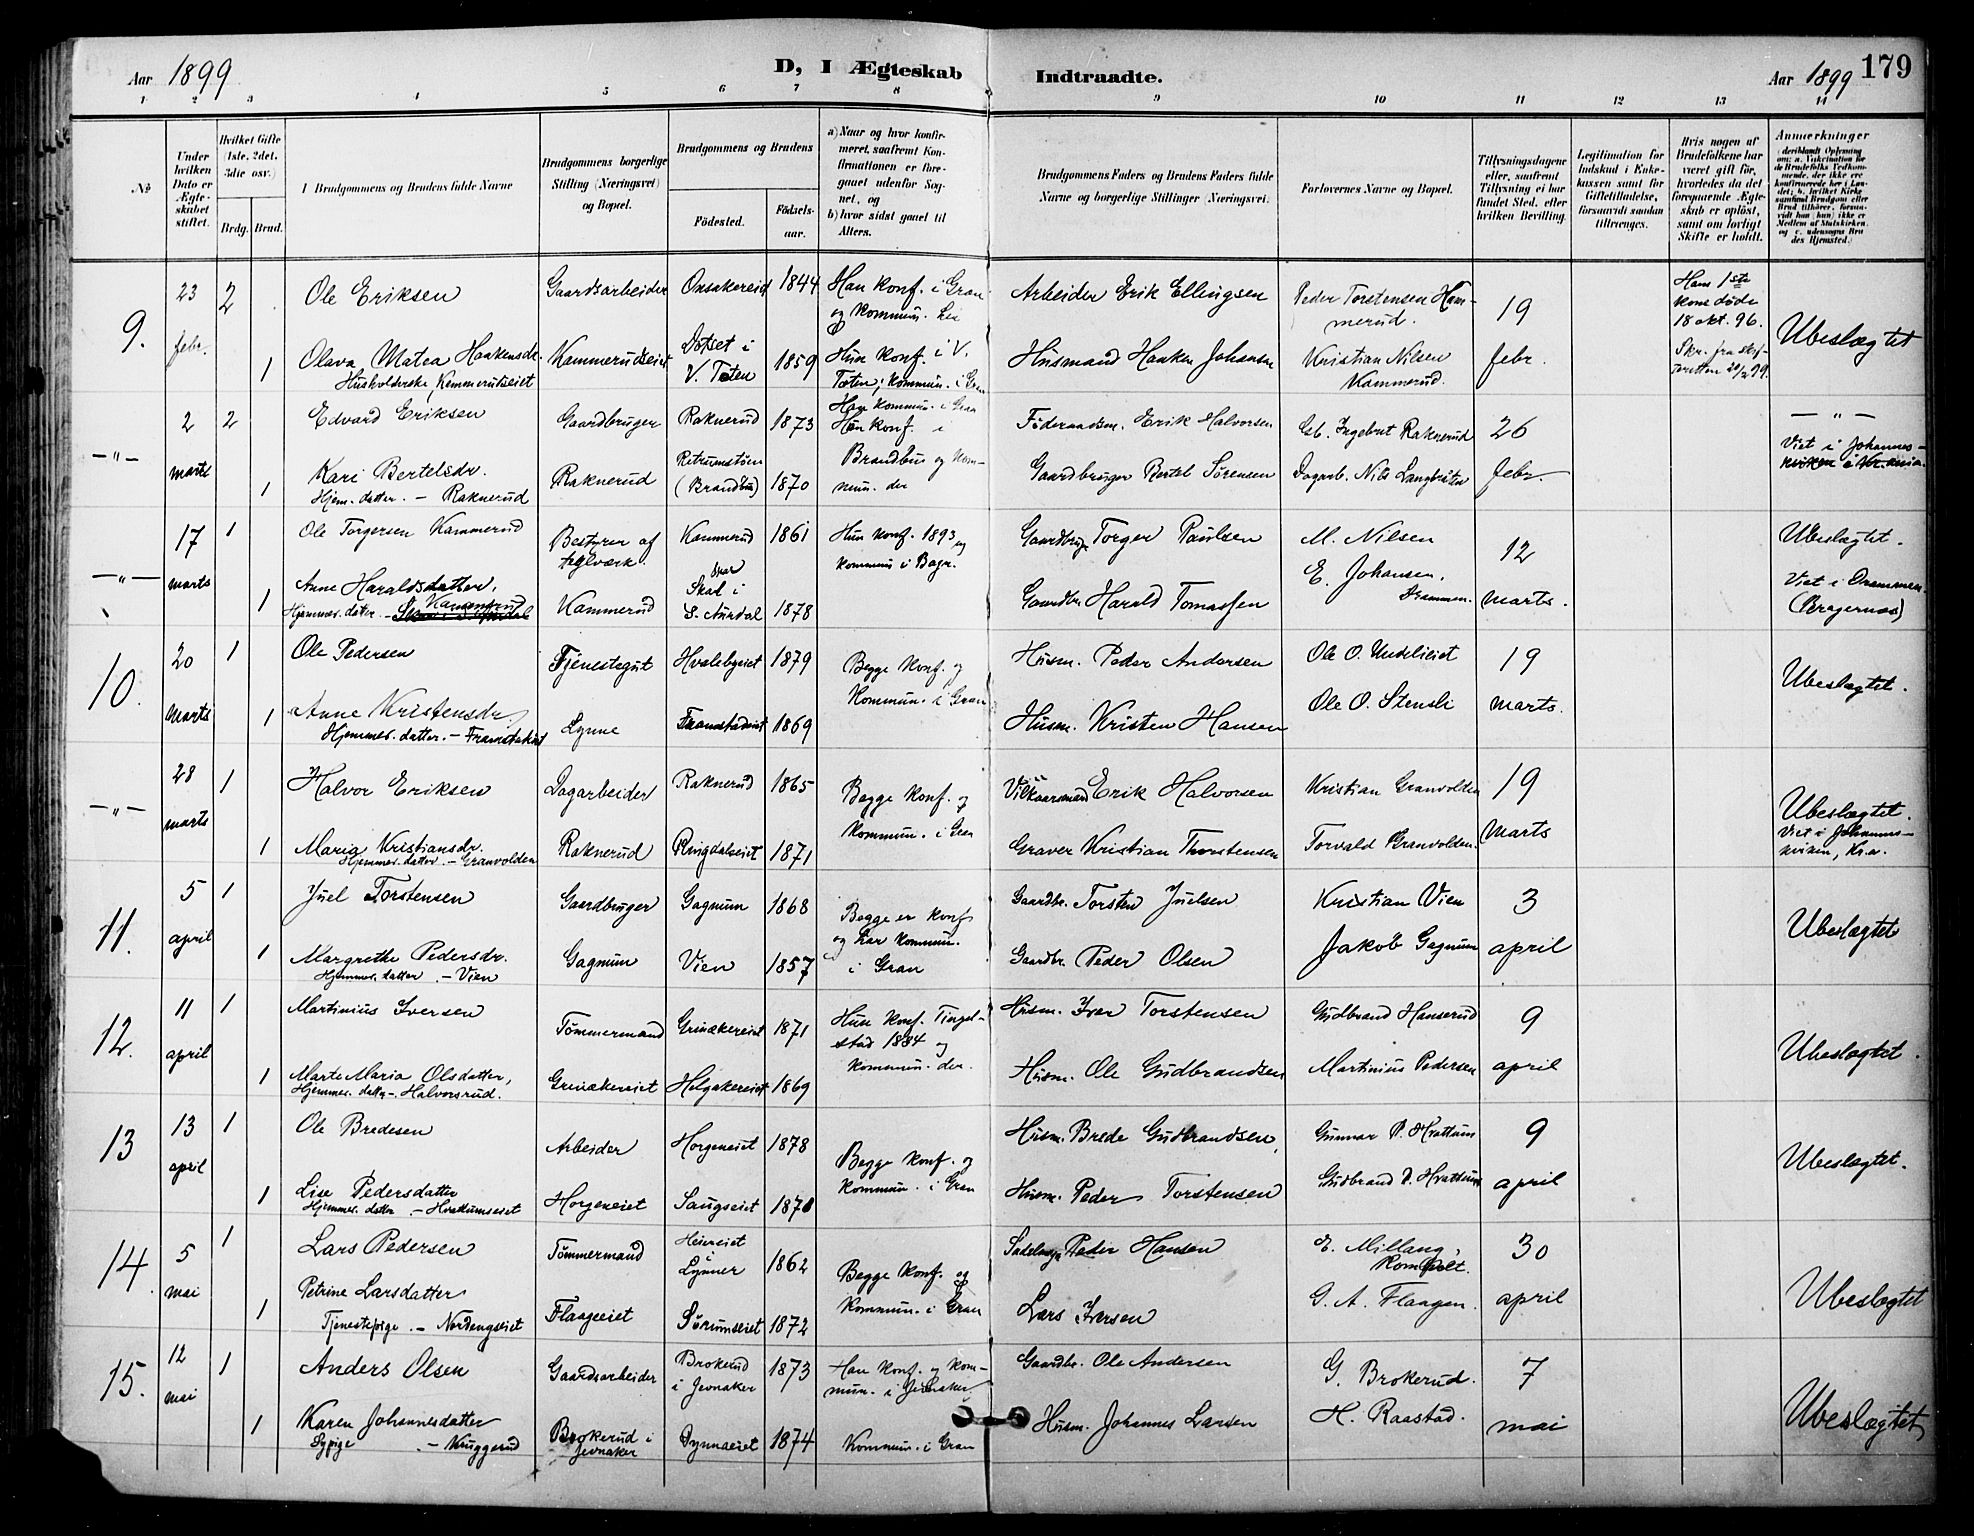 Aar 1899
D, I Ægteskab Indtraadte.
Aar 1899 179
1 2 3 4 5 6 7 8 9 10 11 12 13 14
No
Under hvilken Dato er Ægteskabet stiftet.
Hvilket Gifte (1ste, 2det, 3die osv.)
Brdg. Brud.
Brudgommens og Brudens fulde Navne
Brudgommens borgerlige Stilling (Næringsvei) og Bopæl.
Brudgommens og Brudens
Fødested. Fødselsaar.
a) Naar og hvor konfirmeret, saafremt Konfirmationen er foregaaet udenfor Sognet, og
b) hvor sidst gaaet til Alters.
Brudgommens Faders og Brudens Faders fulde Navne og borgerlige Stillinger (Næringsvei.
Forlovernes Navne og Bopæl.
Tillysningsdagene eller, saafremt Tillysning ei har fundet Sted, efter hvilken Bevilling.
Legitimation for Indskud i Enkekassen samt for Giftetilladelse, forsaavidt saadan tiltrænges.
Hvis nogen af Brudefolkene har været gift før, hvorledes da det foregaaende Ægteskab er opløst, samt om lovligt Skifte er holdt.
Anmærkninger
9. 23 febr. 2 Ole Eriksen Gaardsarbeider Onsakereiet 1844 Han konf. i Gran og kommun. her Arbeider Erik Ellingsen Peder Torstensen Hammerud. 19 febr. Hans 1ste kone døde 18 okt. 96. Skr. fra skifteretten 20/2 99. Ubeslægtet
1 Olava Matea Haakensdr. Husholderske, Kammerudseiet Kammerudseiet V. Toten 1859 Hun konf. i V. Toten; kommun. i Gran Husmand Haaken Johansen Kristian Nilsen Kammerud.
—"— 2 marts 2 Edvard Eriksen Gaardbruger Raknerud 1873 Han kommun. i Gran Hun konf. i Brandbu og kommun. der Føderaadsm. Erik Halvorsen Gb. Ingebret Raknerud 26 febr. —"— Viet i Johanneskirken i Kr.ania.
1 Kari Bertelsdr. Hjem. datter. — Raknerud Raknerud (Brandbu) 1870 Gaardbruger Bertel Sørensen Dagarb. Nils Langbråten
—"— 17 marts 1 Ole Torgersen Kammerud Bestyrer af teglværk. Kammerud 1861 Hun konf. 1893 og kommun i Bagn. Gaardbrug. Torger Paulsen M. Nilsen 12 marts. Ubeslægtet. Viet i Drammen (Bragernæs)
1 Anne Haraldsdatter, Hjemmes. datter. — Kammerud Kammerud S. Aurdal 1878 Gaardbr. Harald Tomassen E. Johansen. Drammen.
10. 20 marts 1 Ole Pedersen Tjenestegut Hvalebyeiet 1879 Begge konf. og kommun. i Gran Husm. Peder Andersen 19 marts. Ubeslægtet.
1 Anne Kristensdr. Hjemmes. datter. — Framstadeiet Lynne Framstadeiet 1869 Husm. Kristen Hansen Ole O. Stensli
—"— 28 marts 1 Halvor Eriksen Dagarbeider Raknerud 1865 Begge konf. og kommun. i Gran Vilkaarsmand Erik Halvorsen Kristian Granvolden 19 Marts Ubeslægtet. Viet i Johanneskirken, Kr.a.
1 Maria Kristiansdr. Hjemmes. datter — Granvolden Raknerud Ringdalseiet 1871 Graver Kristian Thorstensen Torvald Granvolden.
11. 5 april 1 Juel Torstensen Gaardbruger Gagnum 1868 Begge er konf og har kommun. i Gran Gaardbr. Torsten Juelsen Kristian Vien 3 april Ubeslægtet
1 Margrethe Pedersdr. Hjemmes. datter. — Vien Gagnum Vien 1857 Gaardbr. Peder Olsen Jakob Gagnum
12. 11 april 1 Martinius Iversen Tømmermand Grinakereiet 1871 Hun konf. Tingelstad 1884 og kommun. der. Husm. Iver Torstensen Gudbrand Hanserud 9 april Ubeslægtet.
1 Marte Maria Olsdatter, Hjemmes. datter — Halvorsrud. Grinakereiet Helgakereiet 1869 Husm. Ole Gudbrandsen Martinius Pedersen
13 13 april 1 Ole Bredesen Arbeider Horgeneiet 1878 Begge konf. og kommun. i Gran Husm. Brede Gudbrandsen, Gunnar P. Hvattum 9 april Ubeslægtet.
1 Lise Pedersdatter Hjemmes. datter — Hvattumseiet Horgeneiet Saugseiet 1870 Husm. Peder Torstensen Gudbrand D. Hvattum
14. 5 mai 1 Lars Pedersen Tømmermand Heiereiet i Lynner 1862 Begge konf. og kommun. i Gran Sadelmag. Peder Hansen E. Millang, 30 april Ubeslægtet
1 Petrine Larsdatter Tjenestepige. — Nordengseiet Flaageeiet Sørumseiet 1872 Lars Iversen G. A. Flaagen.
15. 12 mai 1 Anders Olsen Gaardsarbeider Brokerud i Jevnaker 1873 Han konf. og kommun. i Jevnaker Gaardbr. Ole Andersen G. Brokerud. 7 mai Ubeslægtet
1 Karen Johannesdatter Sypige — Kruggerud Brokerud i Jevnaker Dynnaeiet 1874 Kommun. i Gran Husm. Johannes Larsen H. Raastad.